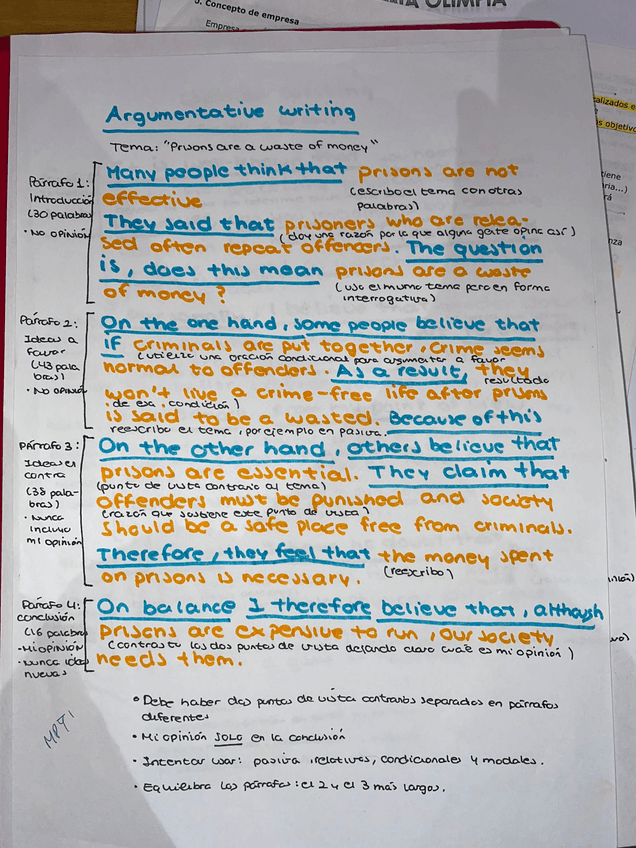 5. Concepto de empresa
OLIMPIA
Argumentative writing
Tema: "Prisons are a waste of money"
Párrafo 1:
Introducción
(30 palabras)
• NO OPINIÓN
Many people think that prisons are not
effective (escribo el tema con otras
palabras)
They said that prisoners who are relea-
(doy una razón por la que alguna gente opina así)
sed often repeat offencers. The question
is, does this mean prisons are a waste
of money? (uso el mismo tema pero en forma
interrogativa)
Párrafo 2:
Ideas a
favor
(43 pala
bras)
• NO OPINIÓN
On the one hand, some people believe that
if criminals are put together, crime seems
(utilizo una oración condicional para argumentar a favor)
normal to offenders. As a result, they
resultado
won't live a crime-free life after prisons
de esa condición)
is said to be a wasted. Because of this
reescribo el tema, por ejemplo en pasiva.
Párrafo 3:
Ideas en
contra
(38 pala-
bras)
• Nunca
incluir
mi opinión
On the other hand, others believe that
prisons are essential. They claim that
(punto de vista contrario al tema)
offenders must be punished and society
(razón que sostiene este punto de vista)
should be a safe place free from criminals.
Therefore, they feel that the money spent
on prisons is necessary. (reescribo)
Párrafo 4:
conclusión
(16 palabras
• MI OPINIÓN
• Nunca ideas
nuevas
On balance I therefore believe that, although
prisons are expensive to run, our society
(contrasto los dos puntos de vista dejando claro cuál es mi opinión)
needs them.
• Debe haber dos puntos de vista contrarios separados en párrafos
diferentes
• Mi opinión SOLO en la conclusión
• Intentar usar: pasiva, relativos, condicionales y modales.
• Equilibra los párrafos: el 2 y el 3 más largos.